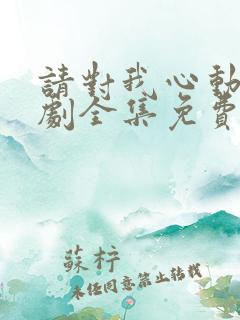 請對我心動
劇全集免費
蘇梓
未经同意禁止转载